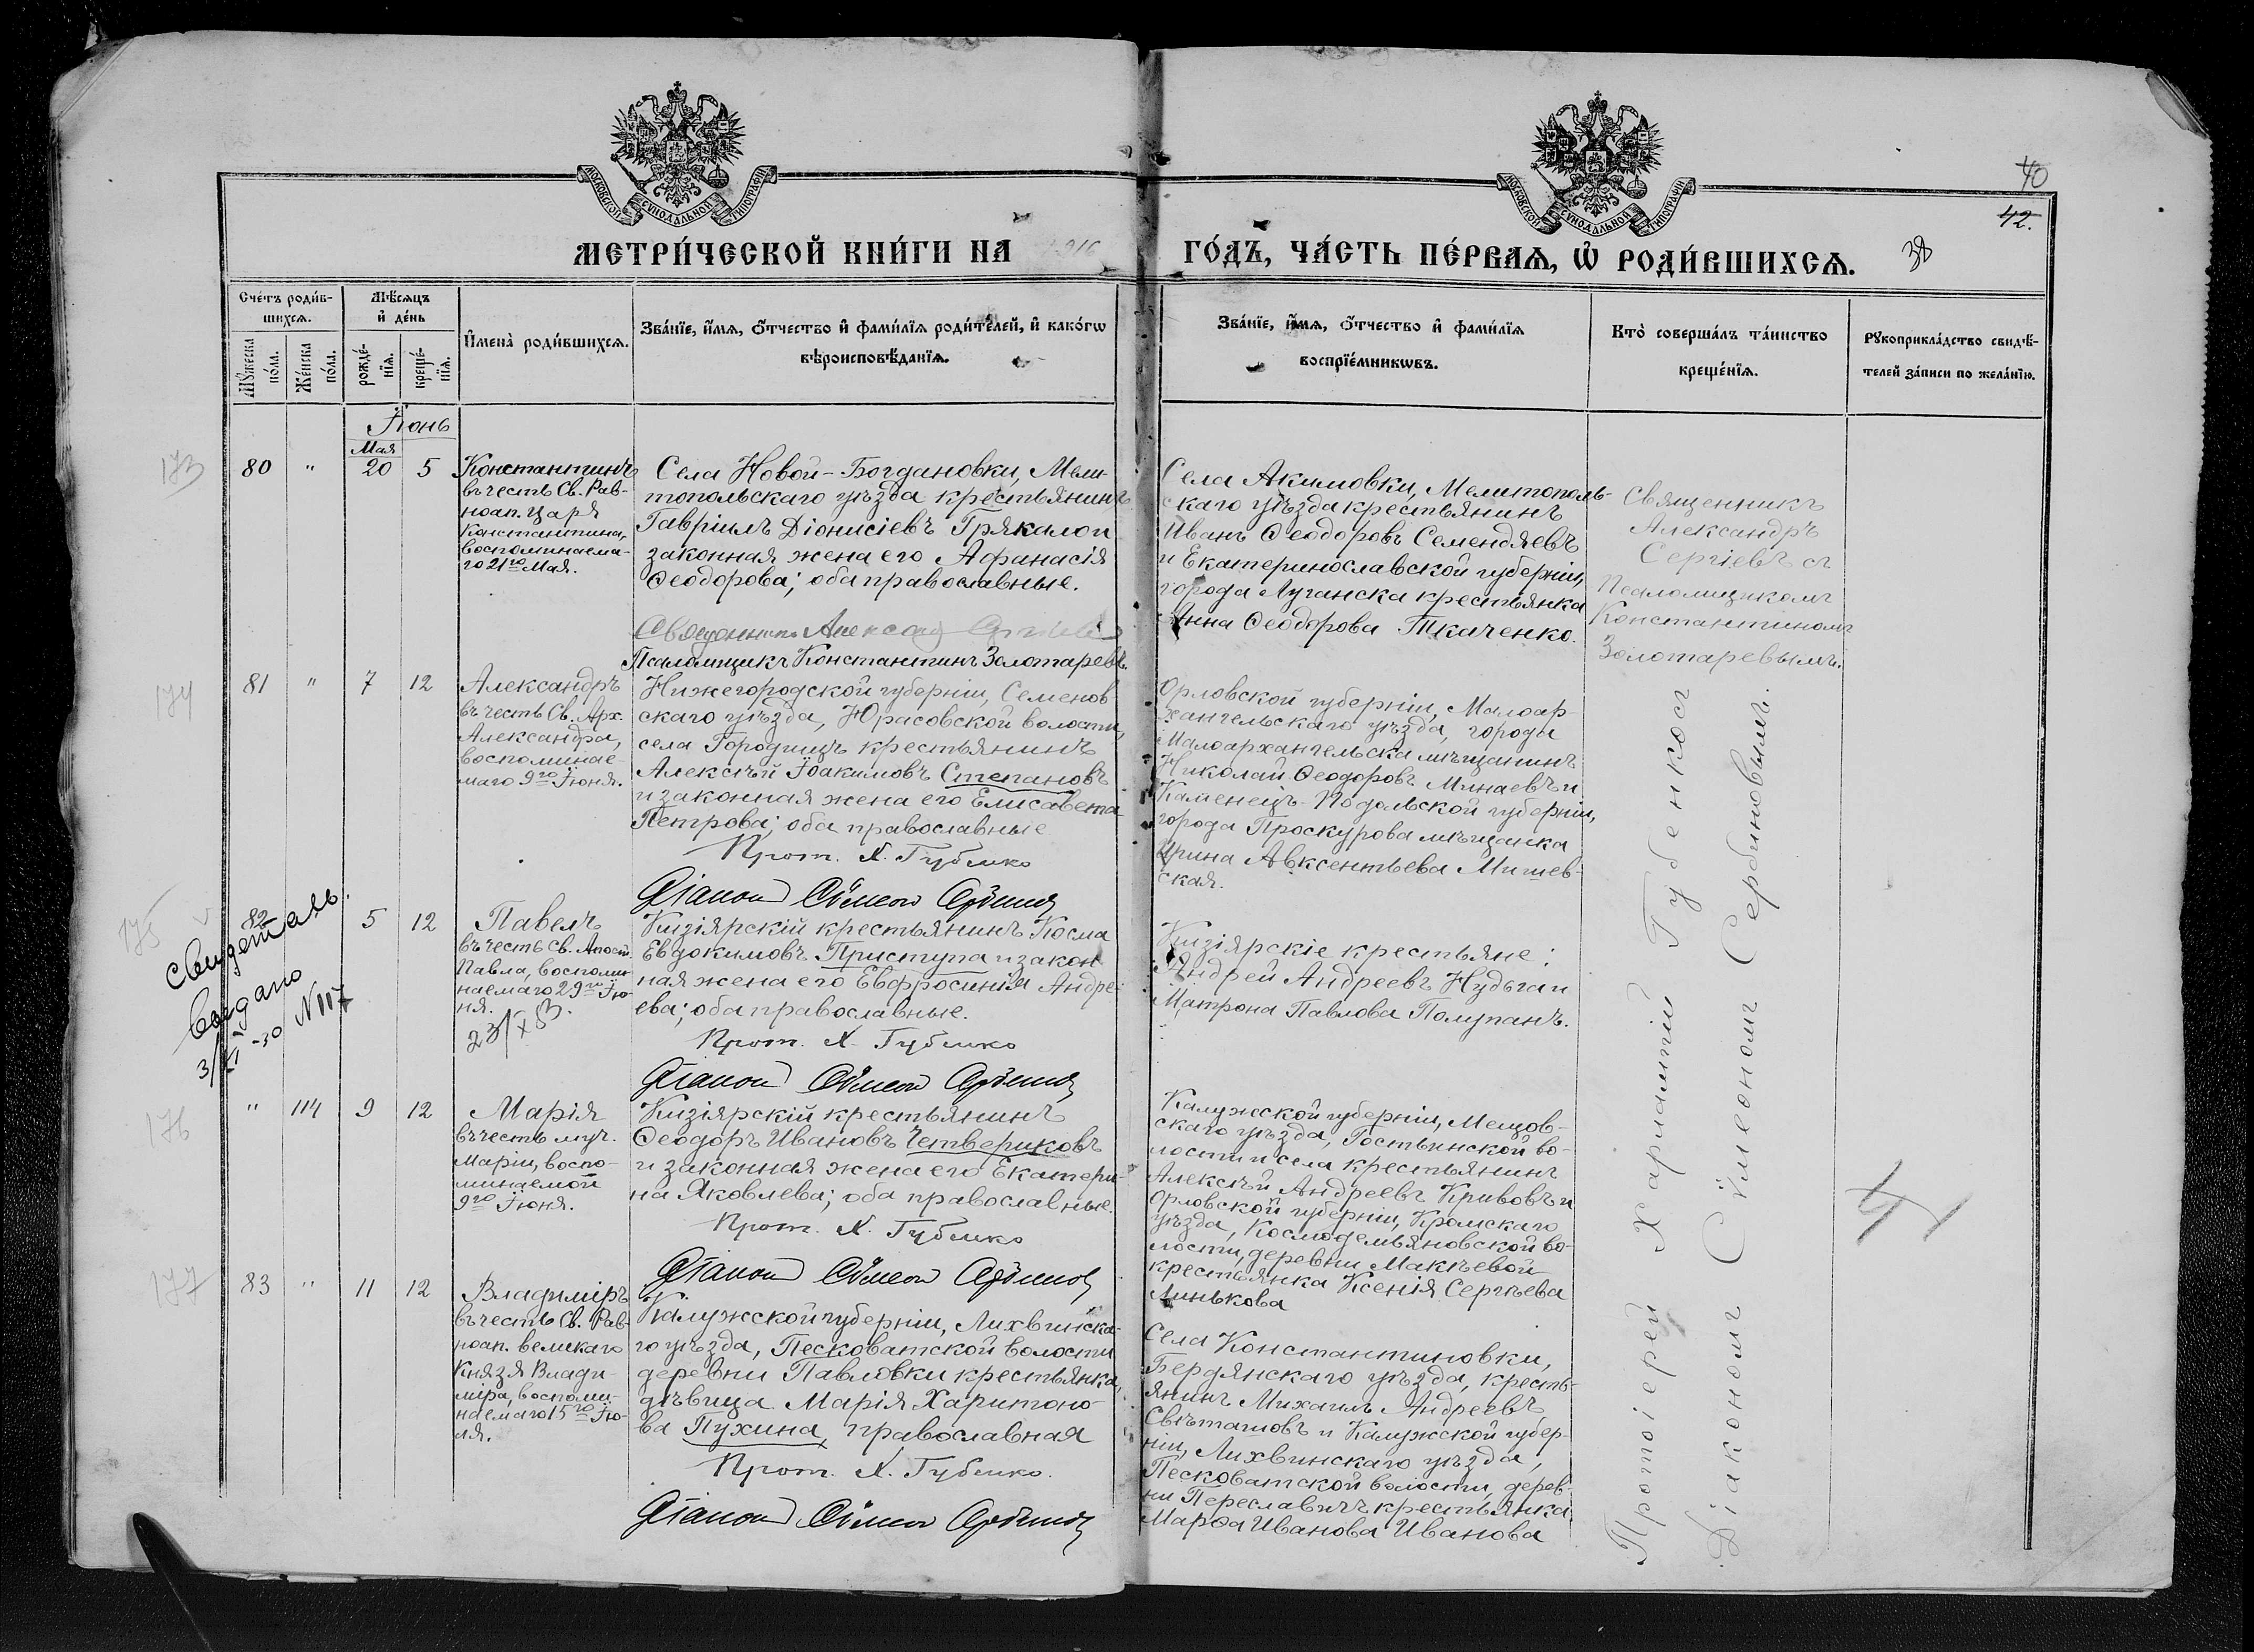 МОСКОВСКОЙ СѴНОДАЛЬНОЙ ТИПОГРАФІИ
МОСКОВСКОЙ СѴНОДАЛЬНОЙ ТИПОГРАФІИ
40
42.
38
МЕТРИ́ЧЕСКОЙ КНИ́ГИ НА 1916 ГО́ДЪ, ЧА́СТЬ ПЕ́РВАѦ, Ѡ҆ РОДИ́ВШИХСѦ.
Сче́тъ роди́в-
шихсѧ.
Мꙋ́жеска по́ла.
Же́нска по́ла.
Мѣ́сѧцъ
и҆ де́нь
рожде́-
нїѧ.
креще́-
нїѧ.
И҆мена̀ роди́вшихсѧ.
Зва́нїе, и҆́мѧ, ѻ҆́тчество и҆ фами́лїѧ роди́телей, и҆ како́гѡ
вѣроисповѣ́данїѧ.
Зва́нїе, и҆́мѧ, ѻ҆́тчество и҆ фами́лїѧ
воспрїе́мникѡвъ.
Кто̀ соверша́лъ та́инство
креще́нїѧ.
Рꙋкоприкла́дство свидѣ́-
телей за́писи по жела́нїю.
Іюнь
Мая
173
80 " 20 5
Константинъ
въ честь Св. Рав-
ноап. Царя
Константина,
воспоминаема-
го 21го Мая.
Села Новой-Богдановки, Мели-
топольскаго уѣзда крестьянинъ
Гавріилъ Діонисіевъ Грякало и
законная жена его Афанасія
Ѳеодорова; оба православные.
Священникъ Александ Сергіевъ
Псаломщикъ Константинъ Золотаревъ
Села Акимовки, Мелитополь-
скаго уѣзда крестьянинъ
Иванъ Ѳеодоровъ Семендяевъ
и Екатеринославской губерніи,
города Луганска крестьянка
Анна Ѳеодорова Ткаченко.
Священникъ
Александръ
Сергіевъ съ
Псаломщикомъ
Константиномъ
Золотаревымъ.
174
81 " 7 12
Александръ
въ честь Св. Арх.
Александра,
воспоминае-
маго 9го Іюня.
Нижегородской губерніи, Семенов
скаго уѣзда, Юрасовской волости,
села Городищъ крестьянинъ
Алексѣй Іоакимовъ Степановъ
и законная жена его Елисавета
Петрова; оба православные
Прот. Х. Губенко
Діакон Сѵмеон Сербинов
Орловской губерніи, Малоар-
хангельскаго уѣзда, города
Малоархангельска мѣщанинъ
Николай Ѳеодоровъ Минаевъ и
Каменецъ-Подольской губерніи,
города Проскурова мѣщанка
Ирина Авксентьева Мишев-
ская.
175
82 5 12
Свидетель.
выдано
3/XI-30 N 117
Павелъ
въ честь Св. Апост.
Павла, воспоми-
наемаго 29го Ію-
ня.
23/X 53.
Кизіярскій крестьянинъ Косма
Евдокимовъ Приступа и закон
ная жена его Евфросинія Андре-
ева; оба православные.
Прот. Х. Губенко
Діакон Сѵмеон Сербинов
Кизіярскіе крестьяне:
Андрей Андреевъ Нудьга и
Матрона Павлова Полупанъ.
176
" 114 9 12
Марія
въ честь муч.
Маріи, воспо-
минаемой
9го Іюня.
Кизіярскій крестьянинъ
Ѳеодоръ Ивановъ Четвериковъ
и законная жена его Екатери-
на Яковлева; оба православные.
Прот. Х. Губенко
Діакон Сѵмеон Сербинов
Калужской губерніи, Мещов-
скаго уѣзда, Гостьинской во-
лости и села крестьянинъ
Алексѣй Андреевъ Кривовъ и
Орловской губерніи, Кромскаго
уѣзда, Космодемьяновской во-
лости, деревни Макѣевой
крестьянка Ксенія Сергѣева
Линькова
177
83 " 11 12
Владиміръ
въ честь Св. Рав-
ноап. великаго
Князя Влади-
міра, воспоми-
наемаго 15го Ію-
ля.
Калужской губерніи, Лихвинска-
го уѣзда, Песковатской волости
деревни Павловки крестьянка,
дѣвица Марія Харитоно-
ва Пухина, православная
Прот. Х. Губенко.
Діакон Сѵмеон Сербинов
Села Константиновки,
Бердянскаго уѣзда, кресть-
янинъ Михаилъ Андреевъ
Свѣташовъ и Калужской губер-
ніи, Лихвинскаго уѣзда,
Песковатской волости, дерев-
ни Переславичъ крестьянка
Марѳа Иванова Иванова
Протоіерей Харлампій Губенко съ
Діакономъ Сѵмеономъ Сербиновымъ.